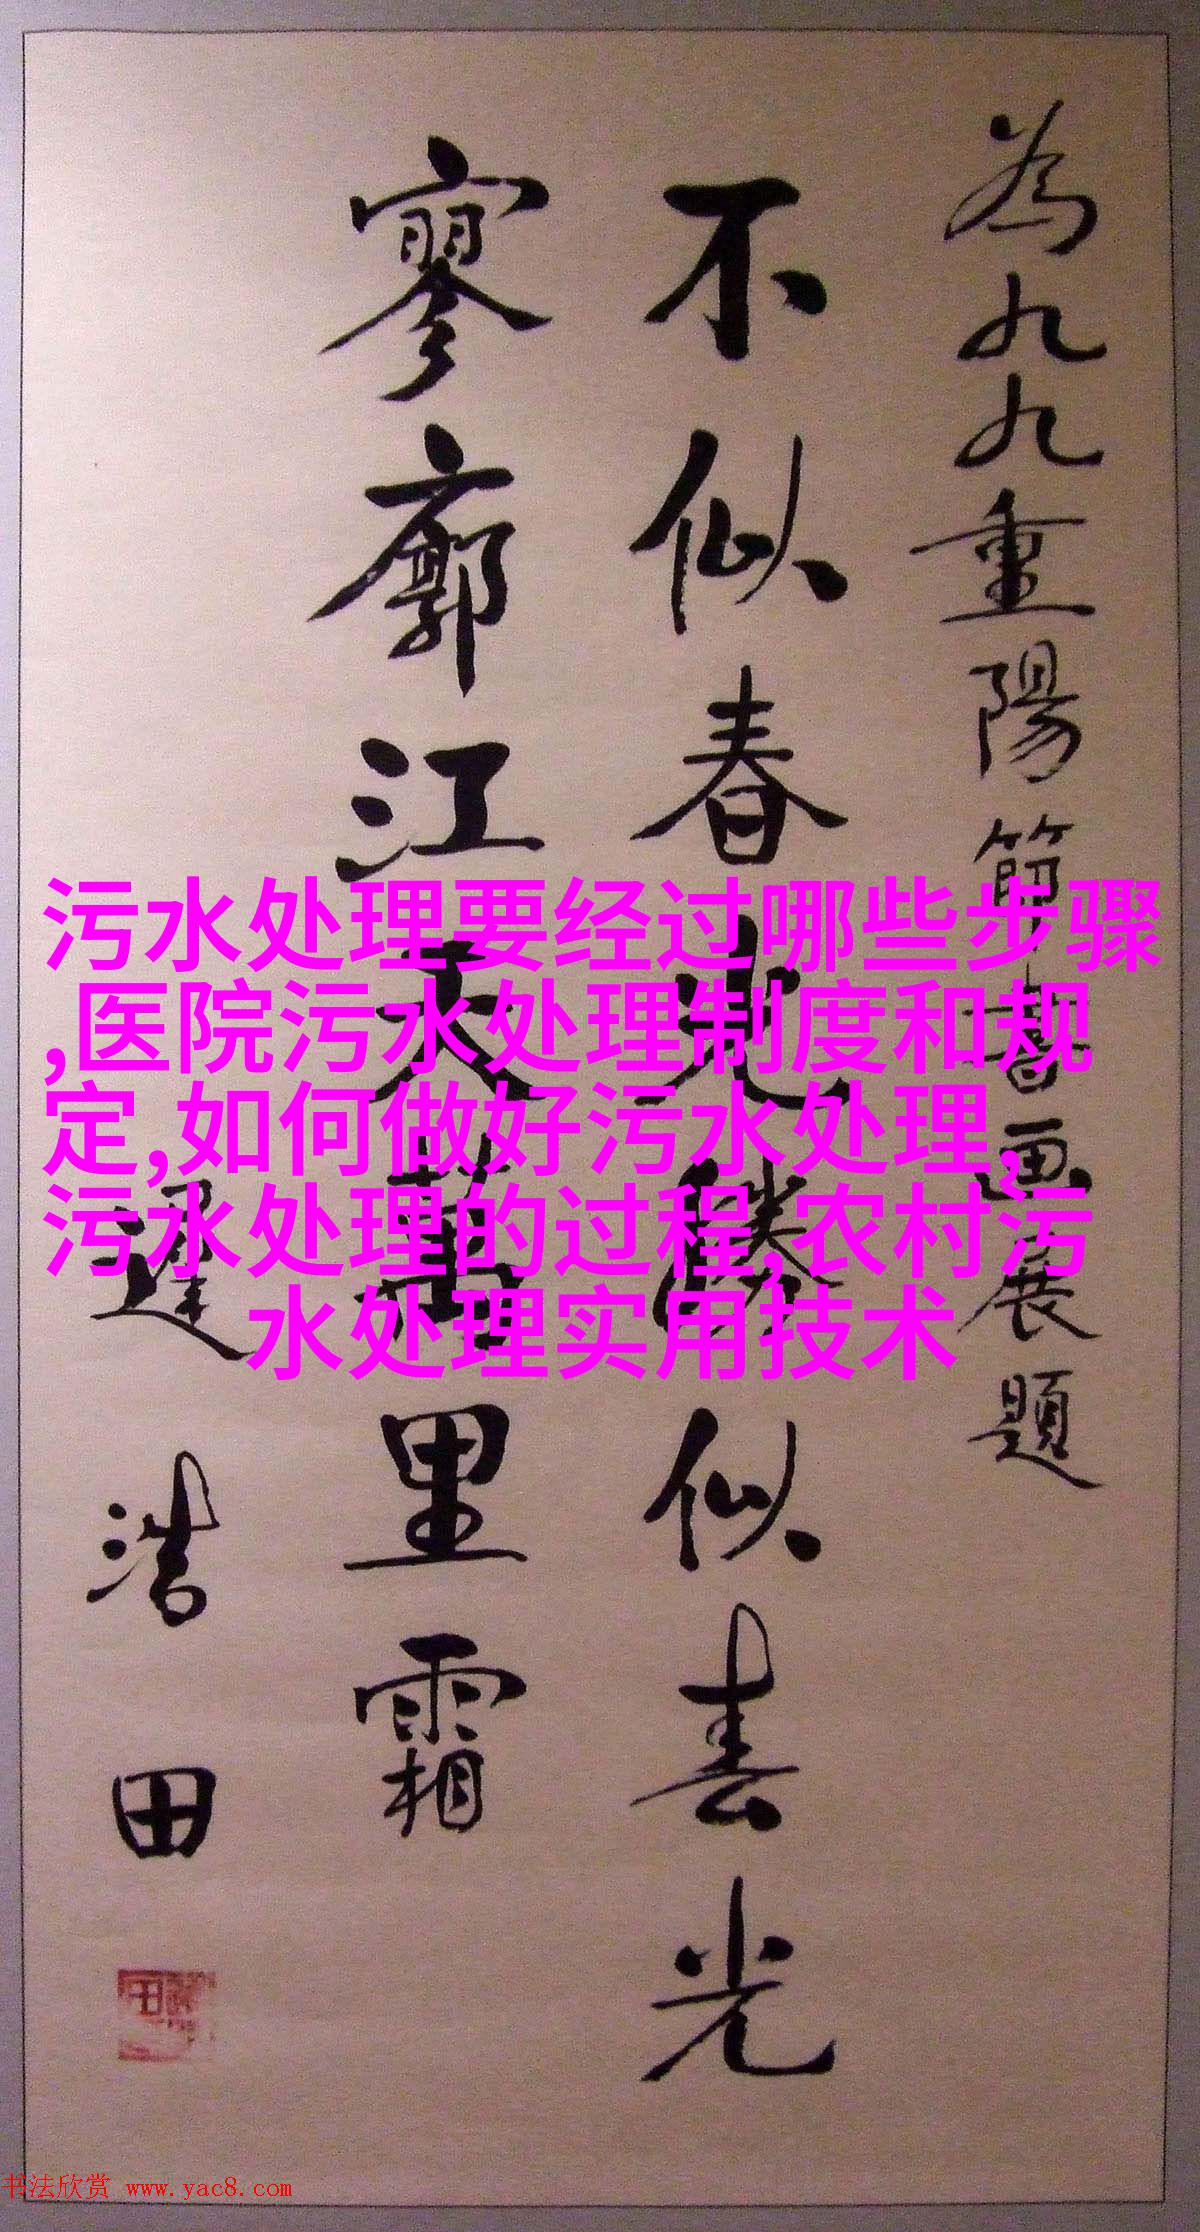 為九九重陽節書画展題
不似春光勝似春光
寥廓江天萬里霜
遲浩田
污水处理要经过哪些步骤
,医院污水处理制度和规
定,如何做好污水处理,
污水处理的过程,农村污
水处理实用技术
书法欣赏 www.yac8.com